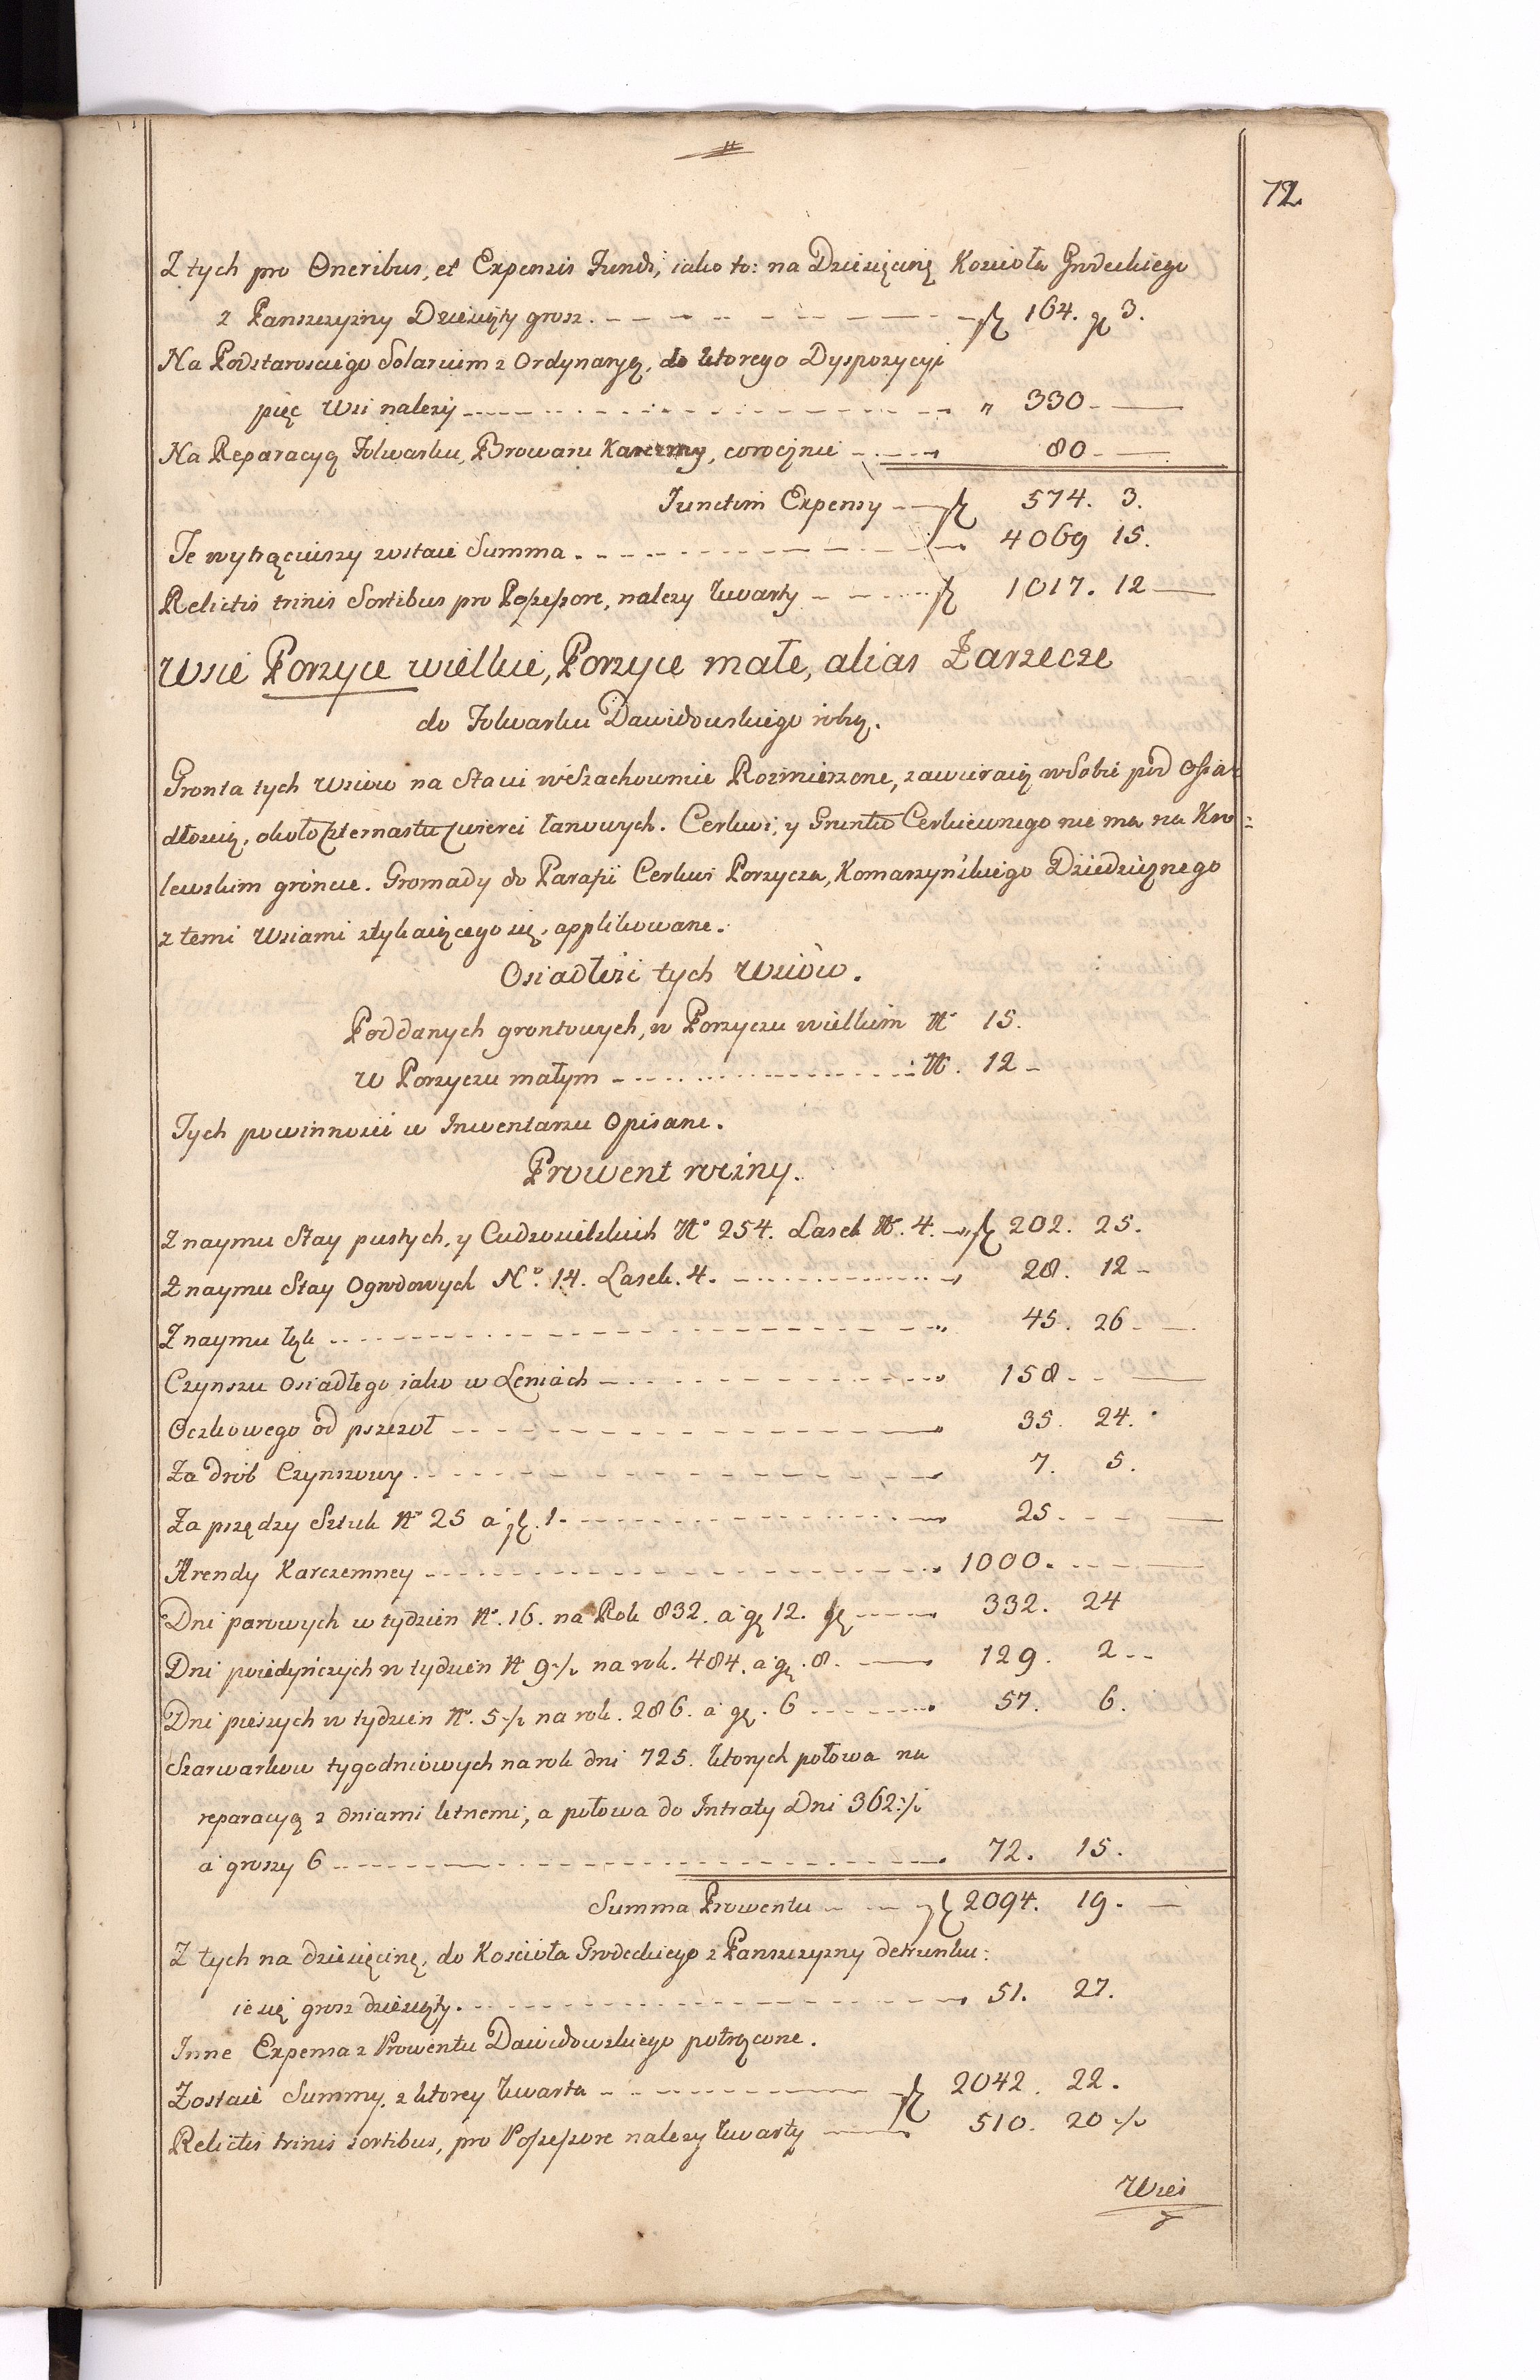 72.
Z tych pro Oneribus, et Expensis Fundi, iako to: na Dziesięcinę Koscioła Grodeckiego
z Panszczyzny Dziesięty grosz. zł 164. gr 3.
Na Podstarosciego Solarium z Ordynaryą, do ktorego Dyspozycyi
pięc Wsi nalezy " 330
Na Reparacyą Folwarku, Browaru Karczmy, corocznie 80
Junctim Expensy zł 574. 3.
Te wytrąciwszy zostaie Summa 4069 15.
Relictis trinis Sortibus pro Possessore, nalezy kwarty zł 1017. 12
Wsie Porzyce wielkie, Porzyce małe, alias Zarzecze
do Folwarku Dawidowskiego robią.
Gronta tych Wsiow na Staii w Szachownie Rozmierzone, zawieraią w Sobie pod Osia:
dłoscią, około czternastu cwierci łanowych. Cerkwi, y Gruntu Cerkiewnego nie ma na Kro:
lewskim gròncie. Gromady do Parafii Cerkwi Porzycza, Komarzyńskiego Dziedzicznego
z temi Wsiami stykaiącego się, applikowane.
Osiadłości tych Wsiòw.
Poddanych grontowych, w Porzyczu wielkim No 15.
W Porzyczu małym No. 12
Tych powinnosci w Inwentarzu Opisane.
Prowent roczny.
Z naymu Stay pustych, y Cudzosielskich No 254. Lasek No. 4. zł 202. 25.
Z naymu Stay Ogrodowych No. 14. Lasek. 4. 28. 12
Z naymu łąk 45. 26
Czynszu Osiadłego iako w Leniach 158
Oczkowego od pszczoł 35. 24.
Za drób Czynszowy 7. 5.
Za przędzy Sztuk No 25 à zł. 1. 25
Arendy Karczemney 1000.
Dni parowych w tydzien No. 16. na Rok 832. à gr 12. 332. 24
Dni poiedyńczych w tydzien No 9 ./. na rok. 484. à gr. 8. 129. 2
Dni pieszych w tydzien No. 5 ./. na rok. 286. à gr. 6 57. 6.
Szarwarkow tygodniowych na rok dni 725. ktorych połowa na
reparacyą z dniami letnemi, a połowa do Intraty Dni 362 ./.
à groszy 6 72. 15.
Summa Prowentu zł 2094. 19.
Z tych na dziesięcinę, do Kościoła Grodeckiego z Panszczyzny detrunku:
ie się grosz dziesięty. 51. 27.
Inne Expensa z Prowentu Dawidowskiego potrącone.
Zostaie Summy, z ktorey kwarta zł 2042. 22.
Relictis trinis sortibus, pro Possessore nalezy kwarty 510. 20 ./.
Wieś